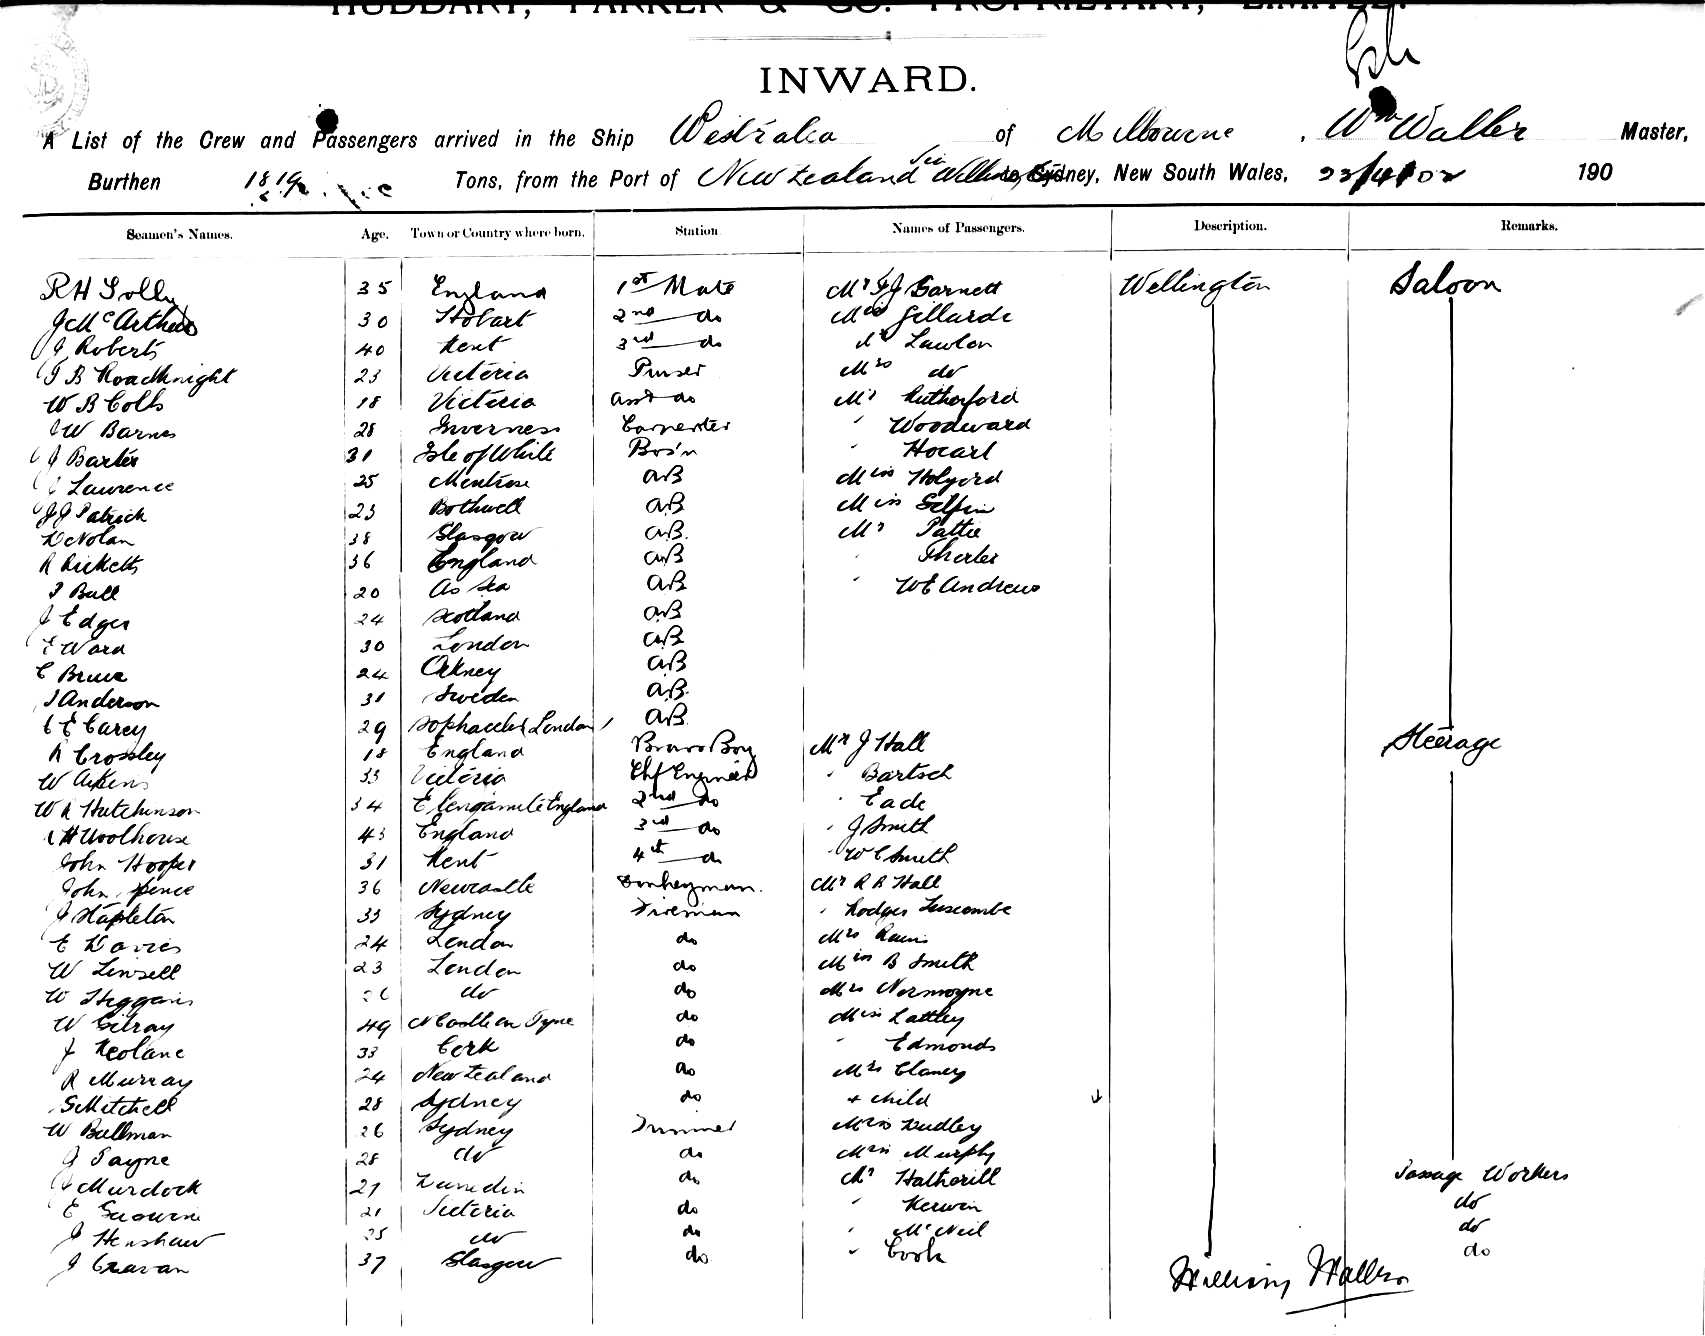 HUDDART, PARKER & CO. PROPRIETARY, LIMITED.
INWARD.
A List of the Crew and Passengers arrived in the Ship Westralia of Melbourne, Wm Waller Master,
Burthen 1819 Tons, from the Port of New Zealand via to Sydney, New South Wales, 23/4/02 190
Seamen's Names. Age. Town or Country where born. Station Names of Passengers. Description. Remarks.
R H Solly 35 England 1st Mate Mr Barnett Wellington Saloon
J McArthur 30 Hobart 2nd do
J Roberts 40 Kent 3rd do Lawton
B Roadknight 23 Victoria Purser Mrs do
W B Colls 18 Victoria asst do Mr Rutherford
W Barnes 28 Inverness Carpenter " Woodward
J Barter 31 Isle of White Bos'n "
Lawrence 25 Montrose AB Miss Holyord
J J Patrick 23 Bothwell AB Miss
D Nolan 38 Glasgow AB. Mr Pattie
R Ricketts 36 England AB "
Bull 20 At Sea AB " W E Andrews
J Edger 24 Scotland AB
E Ward 30 London AB
C Bruce 24 Orkney AB
Anderson 31 Sweden AB
C E Carey 29 London AB
R Crossley 18 England Boy Mr J Hall Steerage
W Aikens 33 Victoria Chf Engineer " Bartsch
W R Hutchinson 34 England 2nd do " Eade
H Woolhouse 43 England 3rd do " J Smith
John Hooper 31 Kent 4th do " W C Smith
John Spence 36 Newcastle Donkeyman. Mr R R Hall
J Stapleton 33 Sydney Fireman " Rodger Luscombe
E Davies 24 London do Mrs
W Linsell 23 London do Miss B Smith
W Higgins do do Mrs Normoyne
W Gilray 49 NCastle on Tyne do Miss Lattley
J 33 Cork do " Edmonds
R Murray 24 New Zealand do Mrs Clancy
S Mitchell 28 Sydney do + child
W Bullman 26 Sydney Trimmer Miss Dudley
J Payne 28 do do Miss Murphy
J Murdock 27 Dunedin do Mr Hatherill Passage Workers
E 21 Victoria do " Kerwin do
J Henshaw 25 do do " McNeil do
J Cravan 37 Glasgow do " Cook do
William Waller